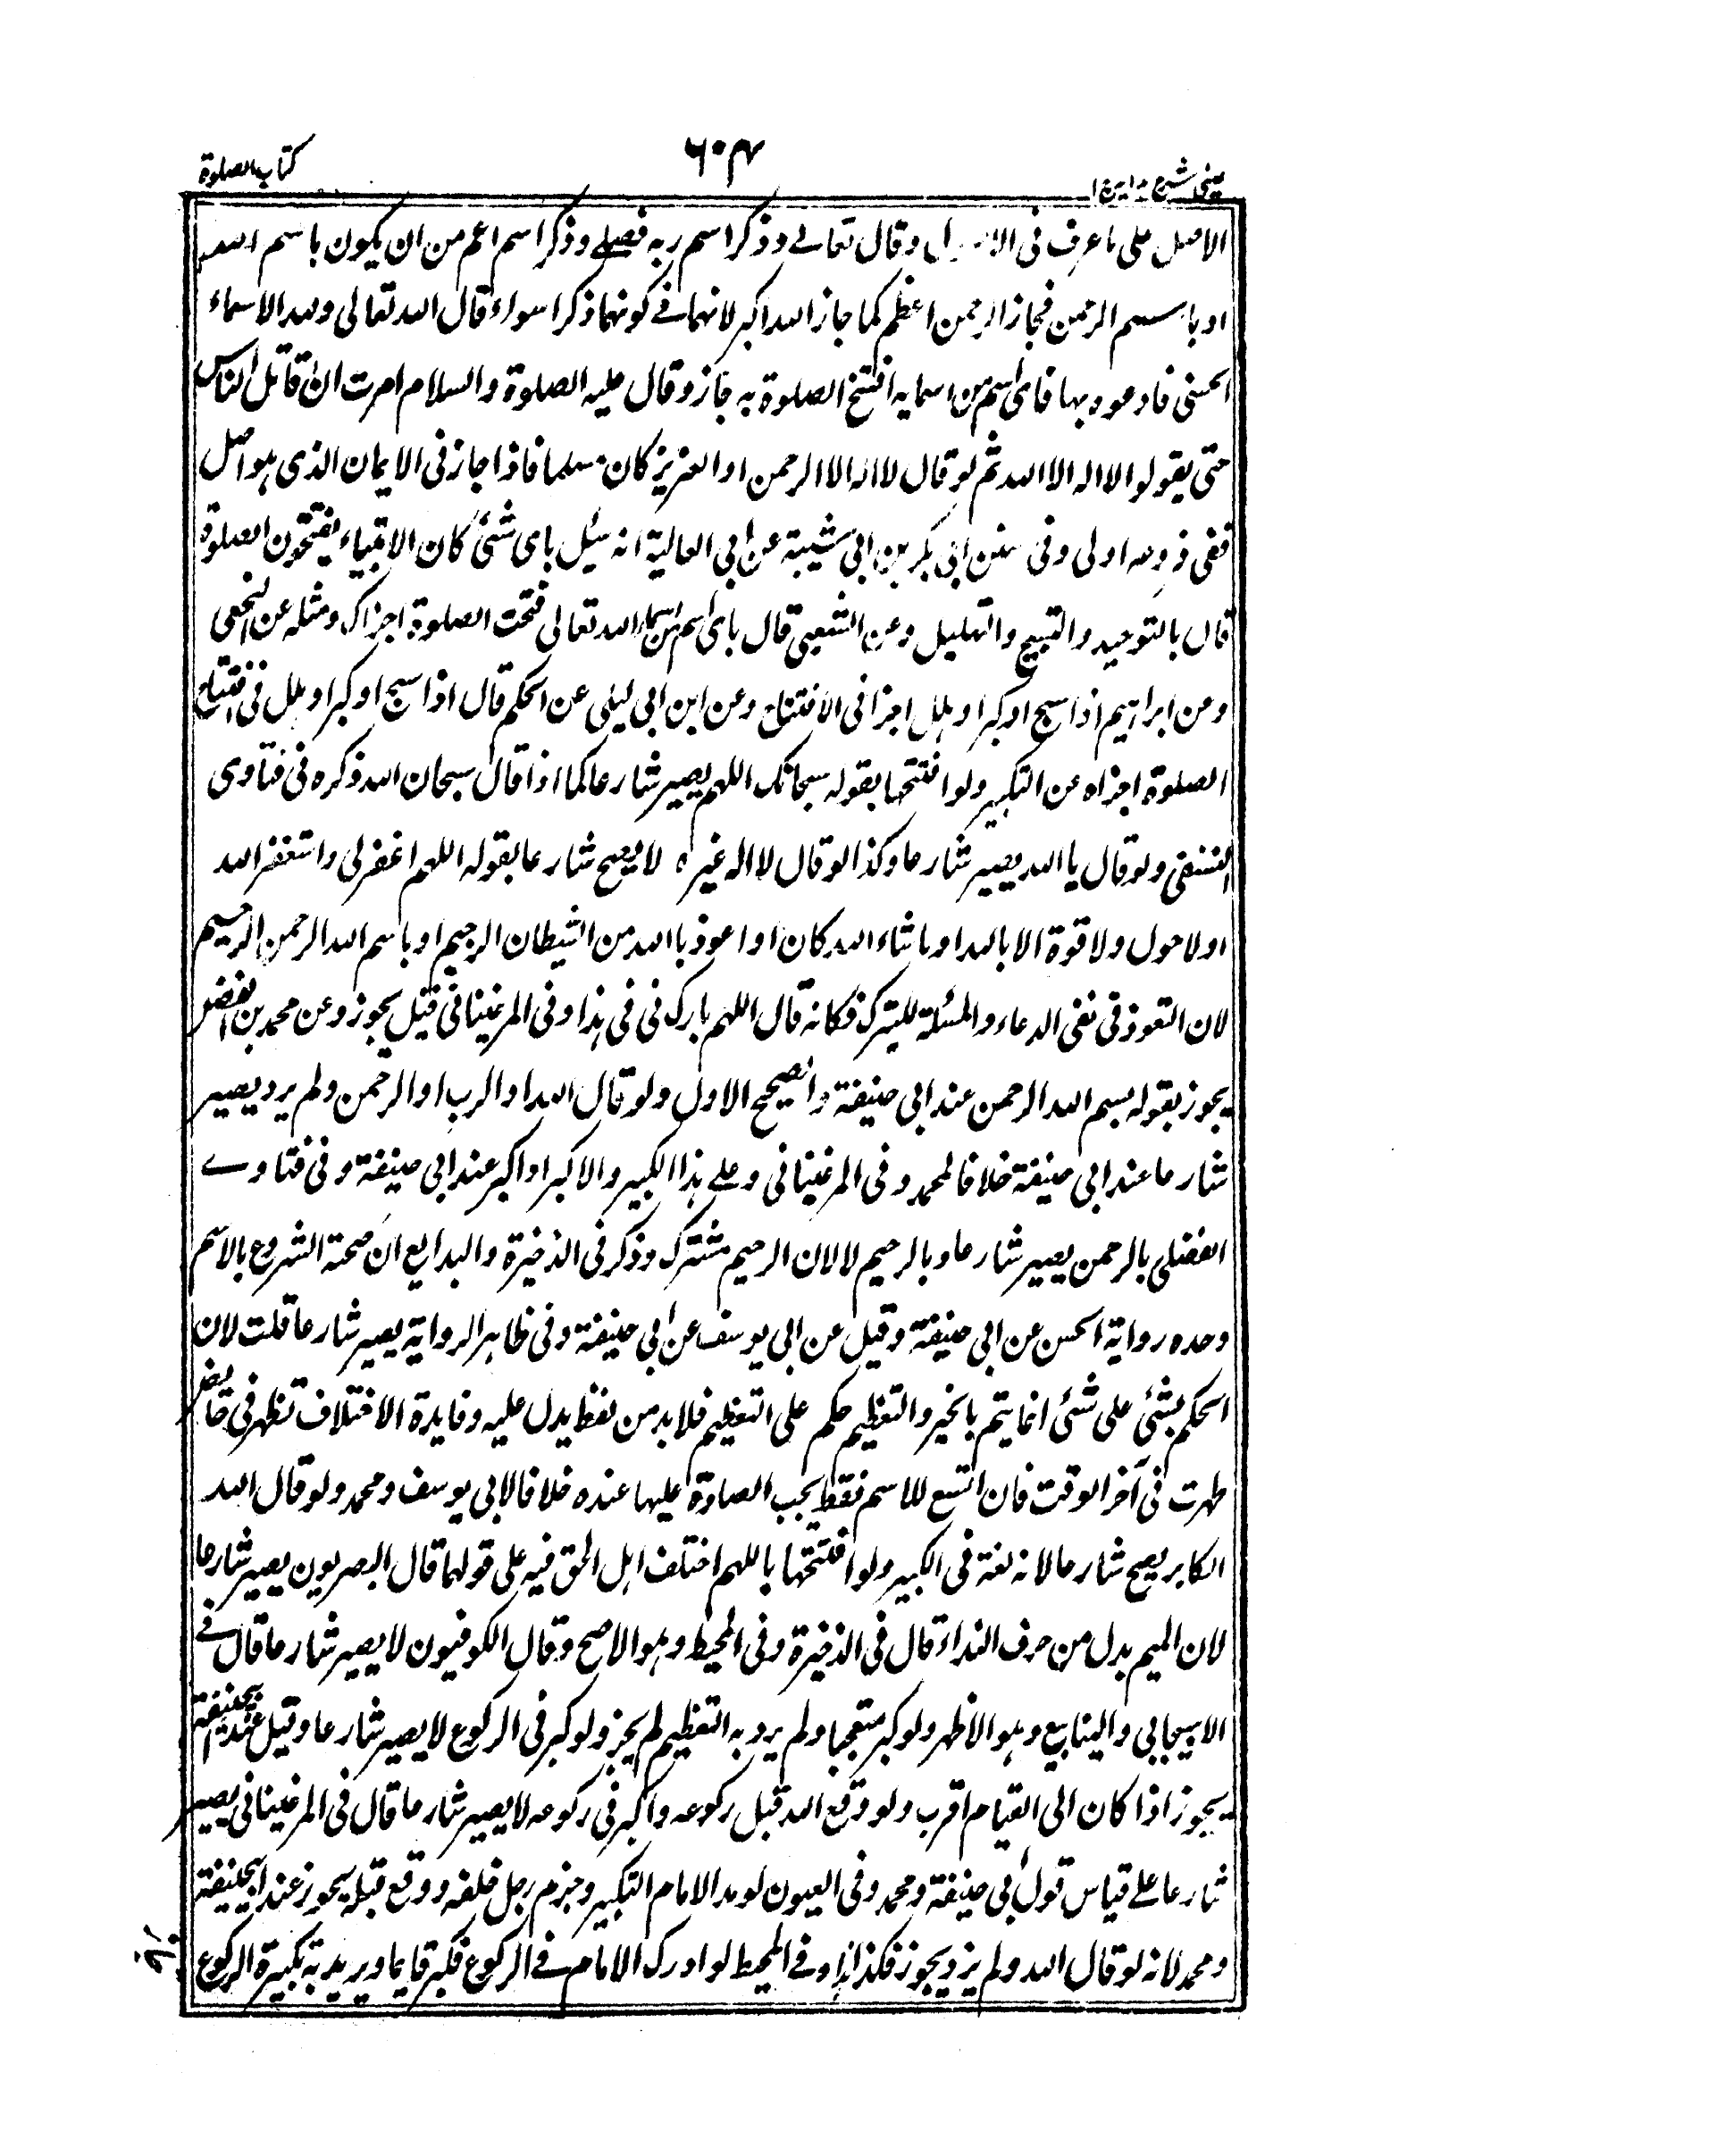 عينى شرح هداية ج ا
٦٠٤
كتاب الصلوة
الاصل على ما عرف فى الاصول وقال تعالے وذكر اسم ربه فصلے وذكر اسم اعم من ان يكون باسم الله
او باسم الرحمن فجاز الرحمن اعظم كما جاز الله اكبر لانهما فے كونهما ذكرا سواء قال الله تعالى ولله الاسماء
الحسنى فادعوه بها فاى اسم من اسمايه افتتح الصلوة به جاز وقال عليه الصلوة والسلام امرت ان اقاتل الناس
حتى يقولوا لا اله الا الله ثم لو قال لا اله الا الرحمن او العزيز كان مسلما فاذا جاز فى الايمان الذى هو اصل
ففى فروعه اولى وفى سنن ابى بكر بن ابى شيبة عن ابى العالية انه سئل باى شئ كان الانبياء يفتتحون الصلوة
قال بالتوحيد والتسبيح والتهليل وعن الشعبى قال باى اسم من اسماء الله تعالى فتحت الصلوة اجزاك ومثله عن النخعى
وعن ابراهيم اذا سبح او كبر او هلل اجزا فى الافتتاح وعن ابن ابى ليلى عن الحكم قال اذا سبح او كبر او هلل فى افتتاح
الصلوة اجزاه عن التكبير ولو افتتحها بقوله سبحانك اللهم يصير شارعا كما اذا قال سبحان الله ذكره فى فتاوى
النسفى ولو قال يا الله يصير شارعا وكذا لو قال لا اله غيره لا يصح شارعا بقوله اللهم اغفر لى واستغفر الله
او لا حول ولا قوة الا بالله او ما شاء الله كان او اعوذ بالله من الشيطان الرجيم او باسم الله الرحمن الرحيم
لان التعوذ فى نفى الدعاء والمسئلة للتبرك فكانه قال اللهم بارك فى فى هذا وفى المرغينانى قيل يجوز وعن محمد بن الفضل
يجوز بقوله بسم الله الرحمن عند ابى حنيفة والصحيح الاول ولو قال الله او الرب او الرحمن ولم يزد يصير
شارعا عند ابى حنيفة خلافا لمحمد وفى المرغينانى وعلے هذا الكبير والاكبر او اكبر عند ابى حنيفة وفى فتاوے
الفضلى بالرحمن يصير شارعا وبالرحيم لا لان الرحيم مشترك وذكر فى الذخيرة والبدايع ان صحة الشروع بالاسم
وحده رواية الحسن عن ابى حنيفة وقيل عن ابى يوسف عن ابى حنيفة وفى ظاهر الرواية يصير شارعا قلت لان
الحكم بشئ على شئ انما يتم بالخير والتعظيم حكم على التعظيم فلا بد من لفظ يدل عليه وفايدة الاختلاف تظهر فى حايض
طهرت فى آخر الوقت فان اتسع للاسم فقط يجب الصلوة عليها عنده خلافا لابى يوسف ومحمد ولو قال الله
الكابر يصح شارعا لانه لغة فى الكبير ولو افتتحها باللهم اختلف اهل الحق فيه على قولهما قال البصريون يصير شارعا
لان الميم بدل من حرف النداء قال فى الذخيرة وفى المحيط وهو الاصح وقال الكوفيون لا يصير شارعا قال فے
الاسبيجابى والينابيع وهو الاظهر ولو كبر متعجبا ولم يرد به التعظيم لم يجز ولو كبر فى الركوع لا يصير شارعا وقيل عند ابيحنيفة
يجوز اذا كان الى القيام اقرب ولو وقع الله قبل ركوعه واكبر فى ركوعه لا يصير شارعا قال فى المرغينانى يصير
شارعا علے قياس قول ابى حنيفة ومحمد وفى العيون لو مد الامام التكبير وجزم رجل خلفه ووقع قبله يجوز عند ابيحنيفة
ومحمد لانه لو قال الله ولم يزد يجوز فكذا هذا وفے المحيط لو ادرك الامام فے الركوع فكبر قايما ويريد به تكبيرة الركوع